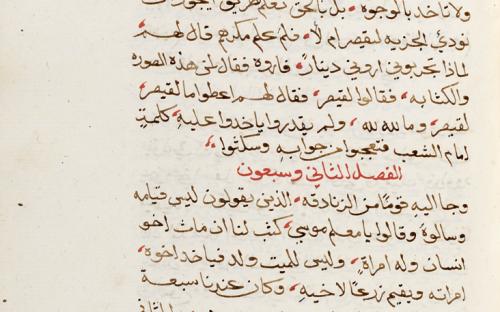 ولا تاخد بالوجوه، بل بالحق تعلم طريق
نودي الجزيه لقيصر ام لا، فلم علم مكرهم قال لهم
لماذا تجربوني اروني دينارًا، فاروه فقال لمن هذه الصوره
والكتابه، فقالوا لقيصر، فقال لهم اعطوا ما لقيصر
لقيصر، وما لله لله، ولم يقدروا ياخدوا عليهِ كلمةٍ
امام الشعب فتعجبوا من جوابهِ وسكتوا،
الفصل الثاني وسبعون
وجا اليهِ قومًا من الزنادقه، الذين يقولون ليس قيامه
وسالوهُ وقالوا يا معلم موسى، كتب لنا ان مات اخو
انسان وله امراةٍ، وليس للميت ولد فياخد اخوهُ
امراته ويقيم زرعًا لاخيهِ، وكان عندنا سبعة